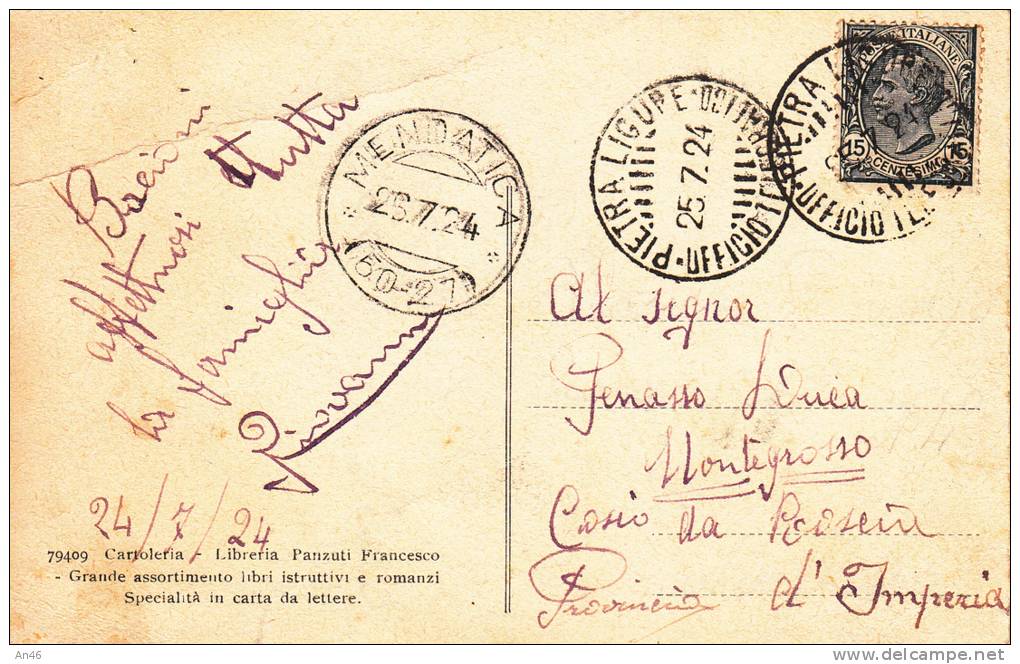 Bacioni
affettuosi
tutta
la famiglia
Giovanni
24/7/24
79409 Cartoleria - Libreria Panzuti Francesco
- Grande assortimento libri istruttivi e romanzi
Specialità in carta da lettere.
MENDATICA
26.7.24
(50-27)
PIETRA LIGURE
25.7.24
UFFICIO
POSTE ITALIANE
15 15
CENTESIMI
PIETRA
UFFICIO
Al Signor
Penasso Duca
Montegrosso
Cosio da
Provincia d'Imperia
An46
www.delcampe.net